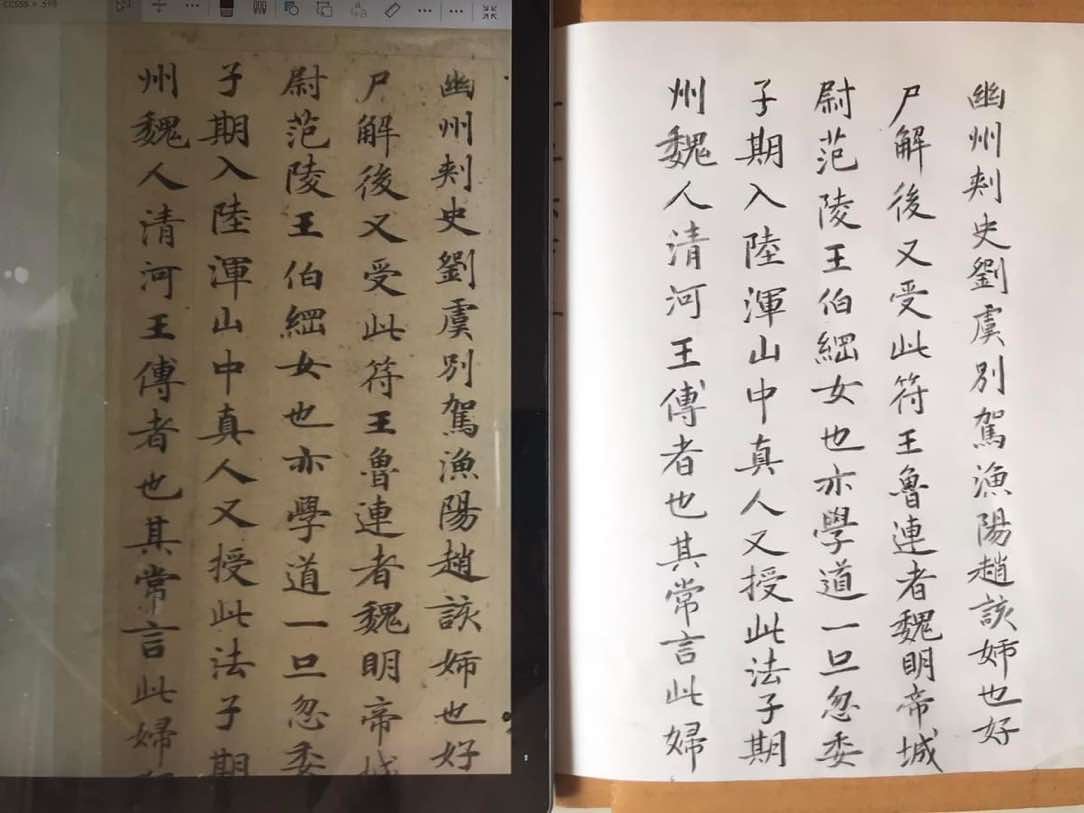 幽州刾史劉虞別駕漁陽趙該姉也好
尸解後又受此符王魯連者魏明帝城
尉范陵王伯綱女也亦學道一旦忽委
子期入陸渾山中真人又授此法子期
州魏人清河王傅者也其常言此婦
幽州刾史劉虞別駕漁陽趙該姉也好
尸解後又受此符王魯連者魏明帝城
尉范陵王伯綱女也亦學道一旦忽委
子期入陸渾山中真人又授此法子期
州魏人清河王傅者也其常言此婦